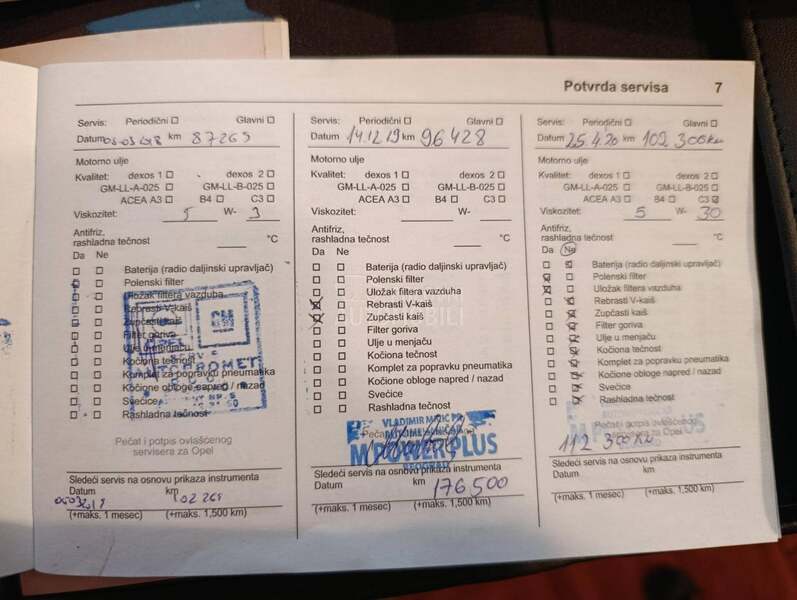 Potvrda servisa 7
Servis: Periodični Glavni
Datum 05.03.2018 km 87269
Motorno ulje
Kvalitet: dexos 1 dexos 2
GM-LL-A-025 GM-LL-B-025
ACEA A3 B4 C3
Viskozitet: 5 W- 3
Antifriz,
rashladna tečnost °C
Da Ne
Baterija (radio daljinski upravljač)
Polenski filter
Uložak filtera vazduha
Rebrasti V-kaiš
Zupčasti kaiš
Filter goriva
Ulje u menjaču
Kočiona tečnost
Komplet za popravku pneumatika
Kočione obloge napred / nazad
Svećice
Rashladna tečnost
GM
OPEL
AUTOPROMET
Pečat i potpis ovlašćenog
servisera za Opel
Sledeći servis na osnovu prikaza instrumenta
Datum km
05032019 102 269
(+maks. 1 mesec) (+maks. 1,500 km)
Servis: Periodični Glavni
Datum 14.12.19 km 96428
Motorno ulje
Kvalitet: dexos 1 dexos 2
GM-LL-A-025 GM-LL-B-025
ACEA A3 B4 C3
Viskozitet: W-
Antifriz,
rashladna tečnost °C
Da Ne
Baterija (radio daljinski upravljač)
Polenski filter
Uložak filtera vazduha
Rebrasti V-kaiš
Zupčasti kaiš
Filter goriva
Ulje u menjaču
Kočiona tečnost
Komplet za popravku pneumatika
Kočione obloge napred / nazad
Svećice
Rashladna tečnost
VLADIMIR
M POWERPLUS
BEOGRAD
Sledeći servis na osnovu prikaza instrumenta
Datum km 176500
(+maks. 1 mesec) (+maks. 1,500 km)
Servis: Periodični Glavni
Datum 25.4.20 km 102 300km
Motorno ulje
Kvalitet: dexos 1 dexos 2
GM-LL-A-025 GM-LL-B-025
ACEA A3 B4 C3
Viskozitet: 5 W- 30
Antifriz,
rashladna tečnost °C
Da Ne
Baterija (radio daljinski upravljač)
Polenski filter
Uložak filtera vazduha
Rebrasti V-kaiš
Zupčasti kaiš
Filter goriva
Ulje u menjaču
Kočiona tečnost
Komplet za popravku pneumatika
Kočione obloge napred / nazad
Svećice
Rashladna tečnost
Pečat i potpis ovlašćenog
servisera za Opel
M POWERPLUS
112 300km
Sledeći servis na osnovu prikaza instrumenta
Datum km
(+maks. 1 mesec) (+maks. 1,500 km)